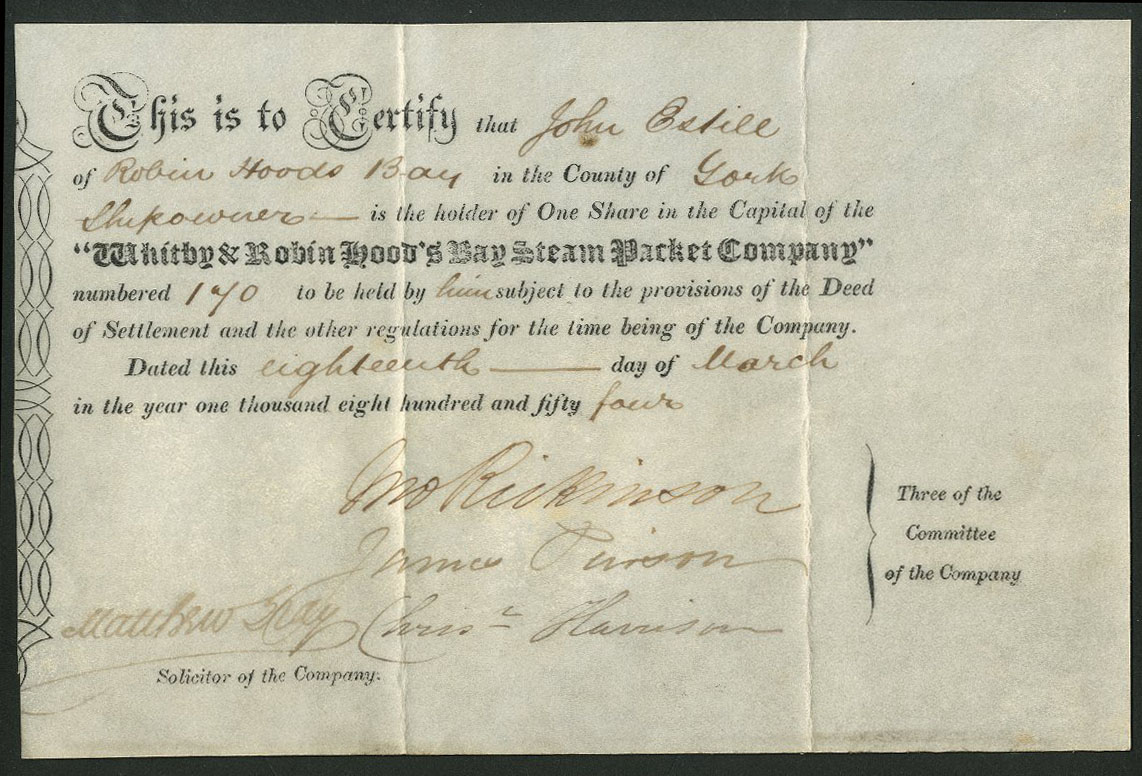 This is to Certify that John Estill
of Robin Hoods Bay in the County of York
Shipowner — is the holder of One Share in the Capital of the
"Whitby & Robin Hood's Bay Steam Packet Company"
numbered 170 to be held by him subject to the provisions of the Deed
of Settlement and the other regulations for the time being of the Company.
Dated this eighteenth — day of March
in the year one thousand eight hundred and fifty four
Jno Rickinson
James Pirson
Matthew Gray Chrisr Harrison
Three of the
Committee
of the Company
Solicitor of the Company.